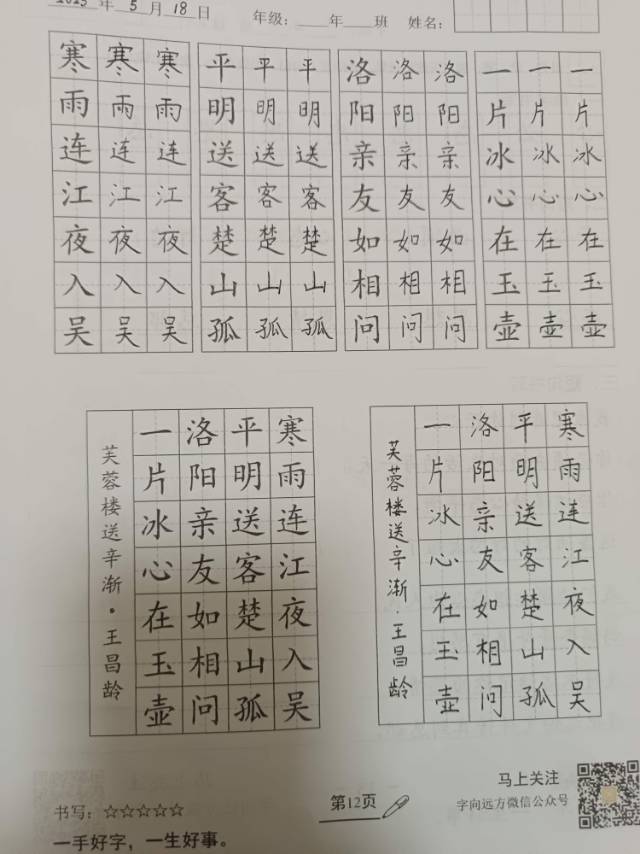 2025年5月18日 年级：____年____班 姓名：
寒寒寒 平平平 洛洛洛 一一一
雨雨雨 明明明 阳阳阳 片片片
连连连 送送送 亲亲亲 冰冰冰
江江江 客客客 友友友 心心心
夜夜夜 楚楚楚 如如如 在在在
入入入 山山山 相相相 玉玉玉
吴吴吴 孤孤孤 问问问 壶壶壶
寒雨连江夜入吴
平明送客楚山孤
洛阳亲友如相问
一片冰心在玉壶
芙蓉楼送辛渐·王昌龄
寒雨连江夜入吴
平明送客楚山孤
洛阳亲友如相问
一片冰心在玉壶
芙蓉楼送辛渐·王昌龄
书写：☆☆☆☆☆
一手好字，一生好事。
第12页
马上关注
字向远方微信公众号